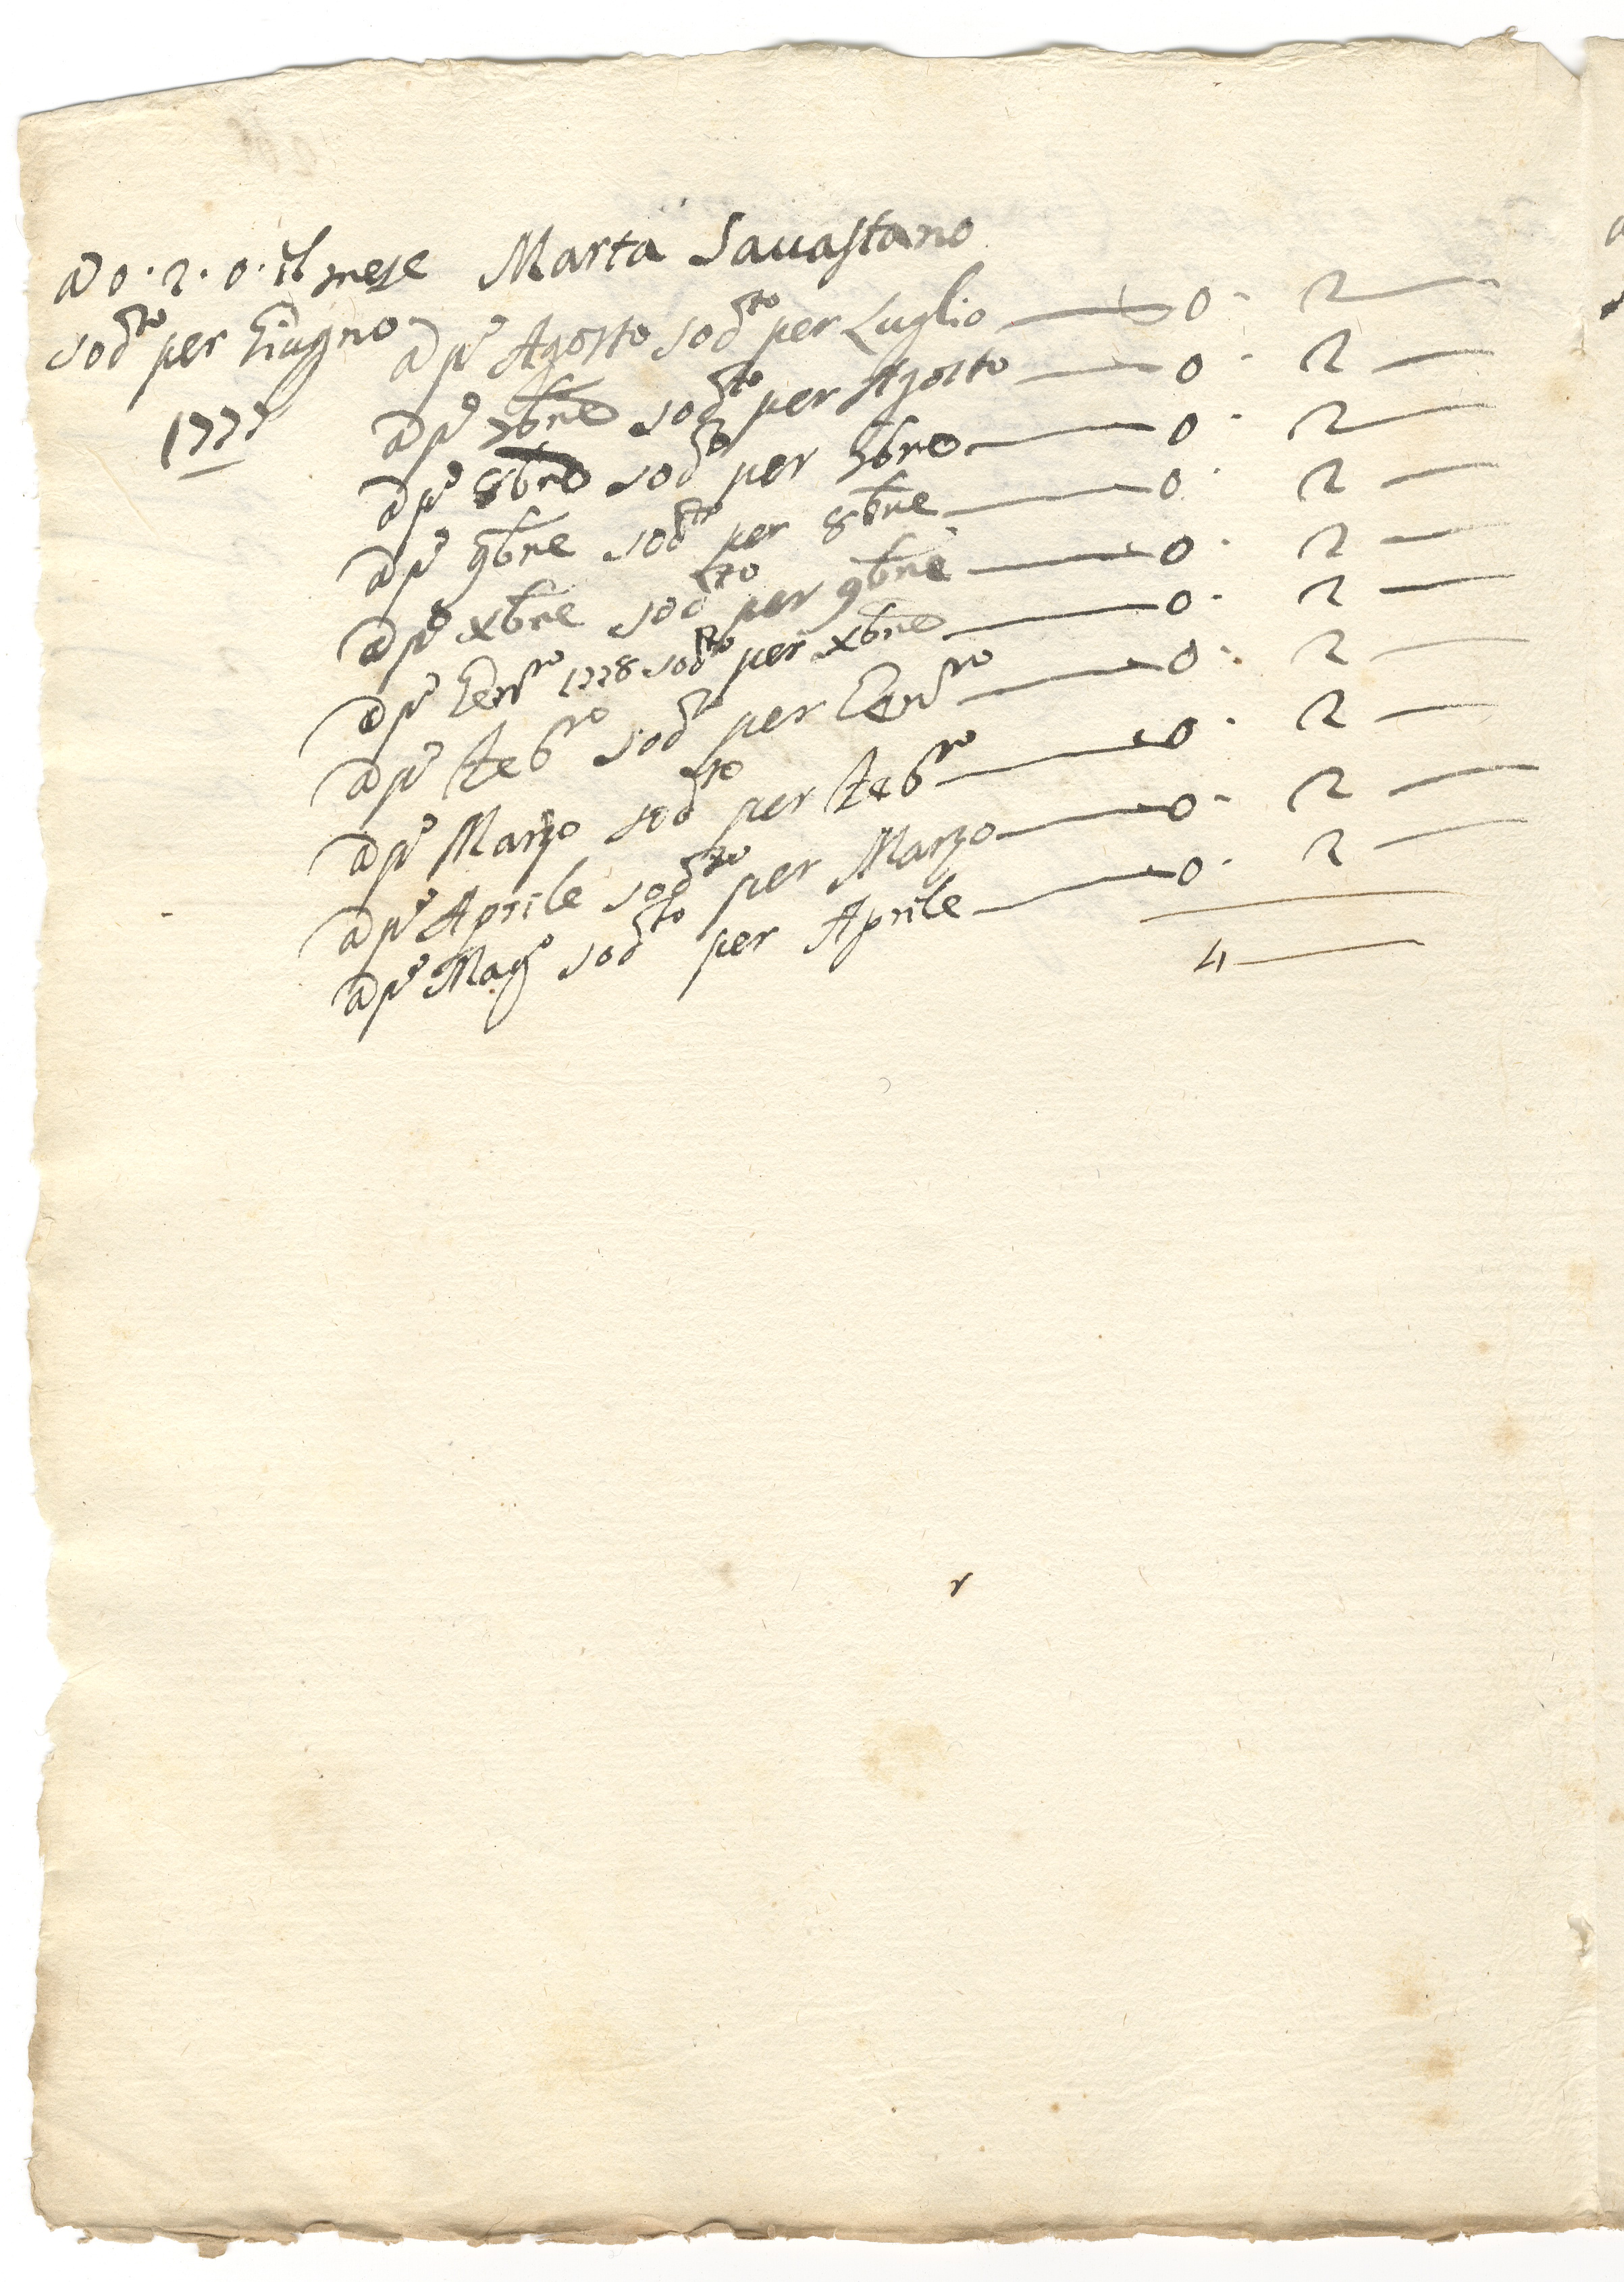 a 0. 2. 0. il mese Marta Sauastano
sod.to per Giugno
1777
a p.o Agosto sod.to per Luglio — 0. 2 —
a p.o 7bre sod.to per Agosto — 0. 2 —
a p.o 8bre sod.to per 7bre — 0. 2 —
a p.o 9bre sod.to per 8bre — 0. 2 —
a p.o xbre sod.to per 9bre — 0. 2 —
a p.o Gen.ro 1778 sod.to per xbre — 0. 2 —
a p.o Feb.ro sod.to per Gen.ro — 0. 2 —
a p.o Marzo sod.to per Feb.ro — 0. 2 —
a p.o Aprile sod.to per Marzo — 0. 2 —
a p.o Mag.o sod.to per Aprile — 0. 2 —
4 —